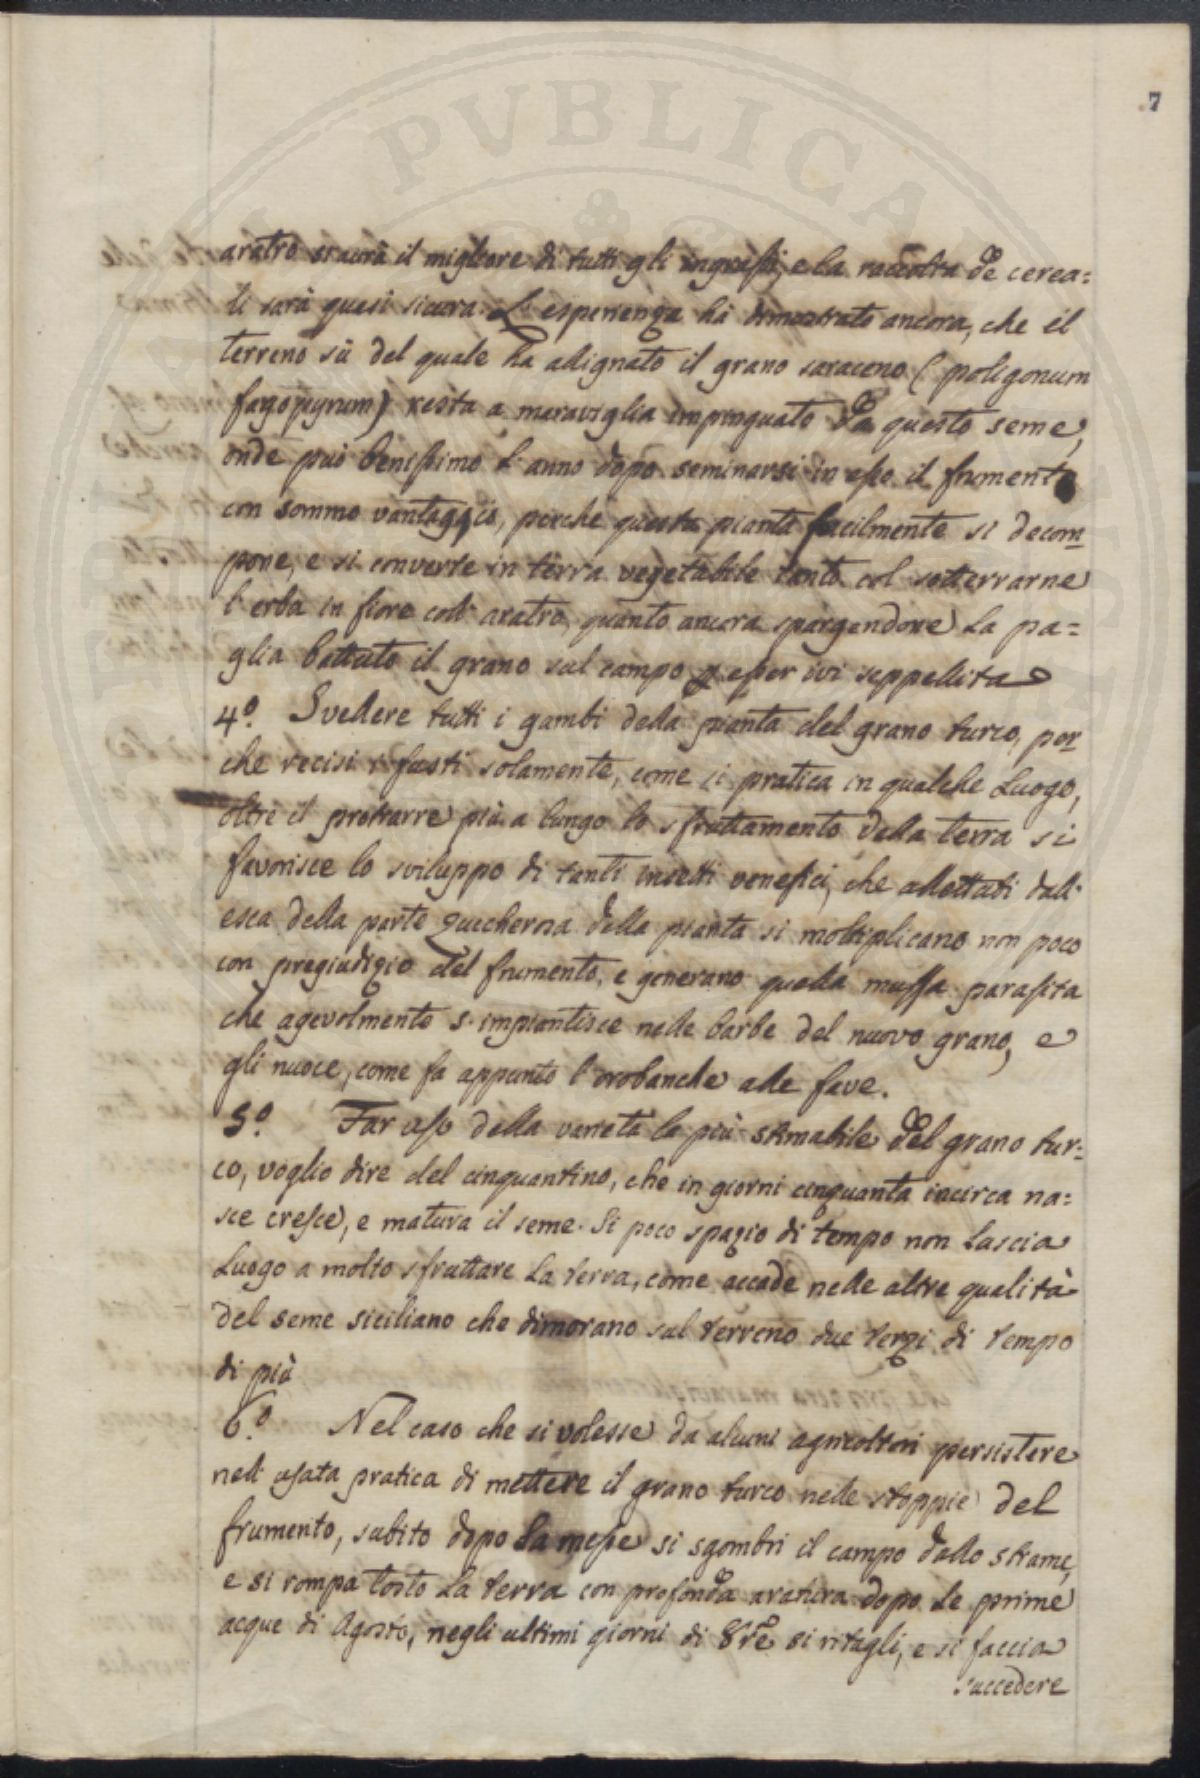 7
aratro si avrà il migliore di tutti gli ingrassi, e la raccolta de cerea=
li sarà quasi sicura. L'esperienza hà dimostrato ancora, che il
terreno sù del quale ha allignato il grano saraceno (poligonum
fagopyrum) resta a maraviglia impinguato da questo seme,
onde può benissimo l'anno dopo seminarsi in esso il frumento
con sommo vantaggio, perchè questa pianta facilmente si decom=
pone, e si converte in terra vegetabile tanto col sotterrarne
l'erba in fiore coll'aratro, quanto ancora spargendone la pa=
glia battuto il grano sul campo p esser ivi seppellita
4.o Svellere tutti i gambi della pianta del grano turco, per
che recisi i fusti solamente, come si pratica in qualche Luogo,
oltre il protrarre più a lungo lo sfruttamento della terra si
favorisce lo sviluppo di tanti insetti venefici, che allettati dall'
esca della parte zuccherosa della pianta si moltiplicano non poco
con pregiudizio del frumento, e generano quella muffa parasita
che agevolmente s'impiantisce nelle barbe del nuovo grano, e
gli nuoce, come fa appunto l'orobanche alle fave.
5.o Far uso della varietà la più stimabile del grano tur=
co, voglio dire del cinquantino, che in giorni cinquanta incirca na=
sce cresce, e matura il seme. Sì poco spazio di tempo non lascia
Luogo a molto sfruttare la terra, come accade nelle altre qualità
del seme siciliano che dimorano sul terreno due terzi di tempo
di più
6.o Nel caso che si volesse da alcuni agricoltori persistere
nell'usata pratica di mettere il grano turco nelle stoppie del
frumento, subito dopo la messe si sgombri il campo dallo strame,
e si rompa tosto la terra con profonda aratura dopo le prime
acque di Agosto, negli ultimi giorni di 8bre si ritagli, e si faccia
succedere
PUBLICA